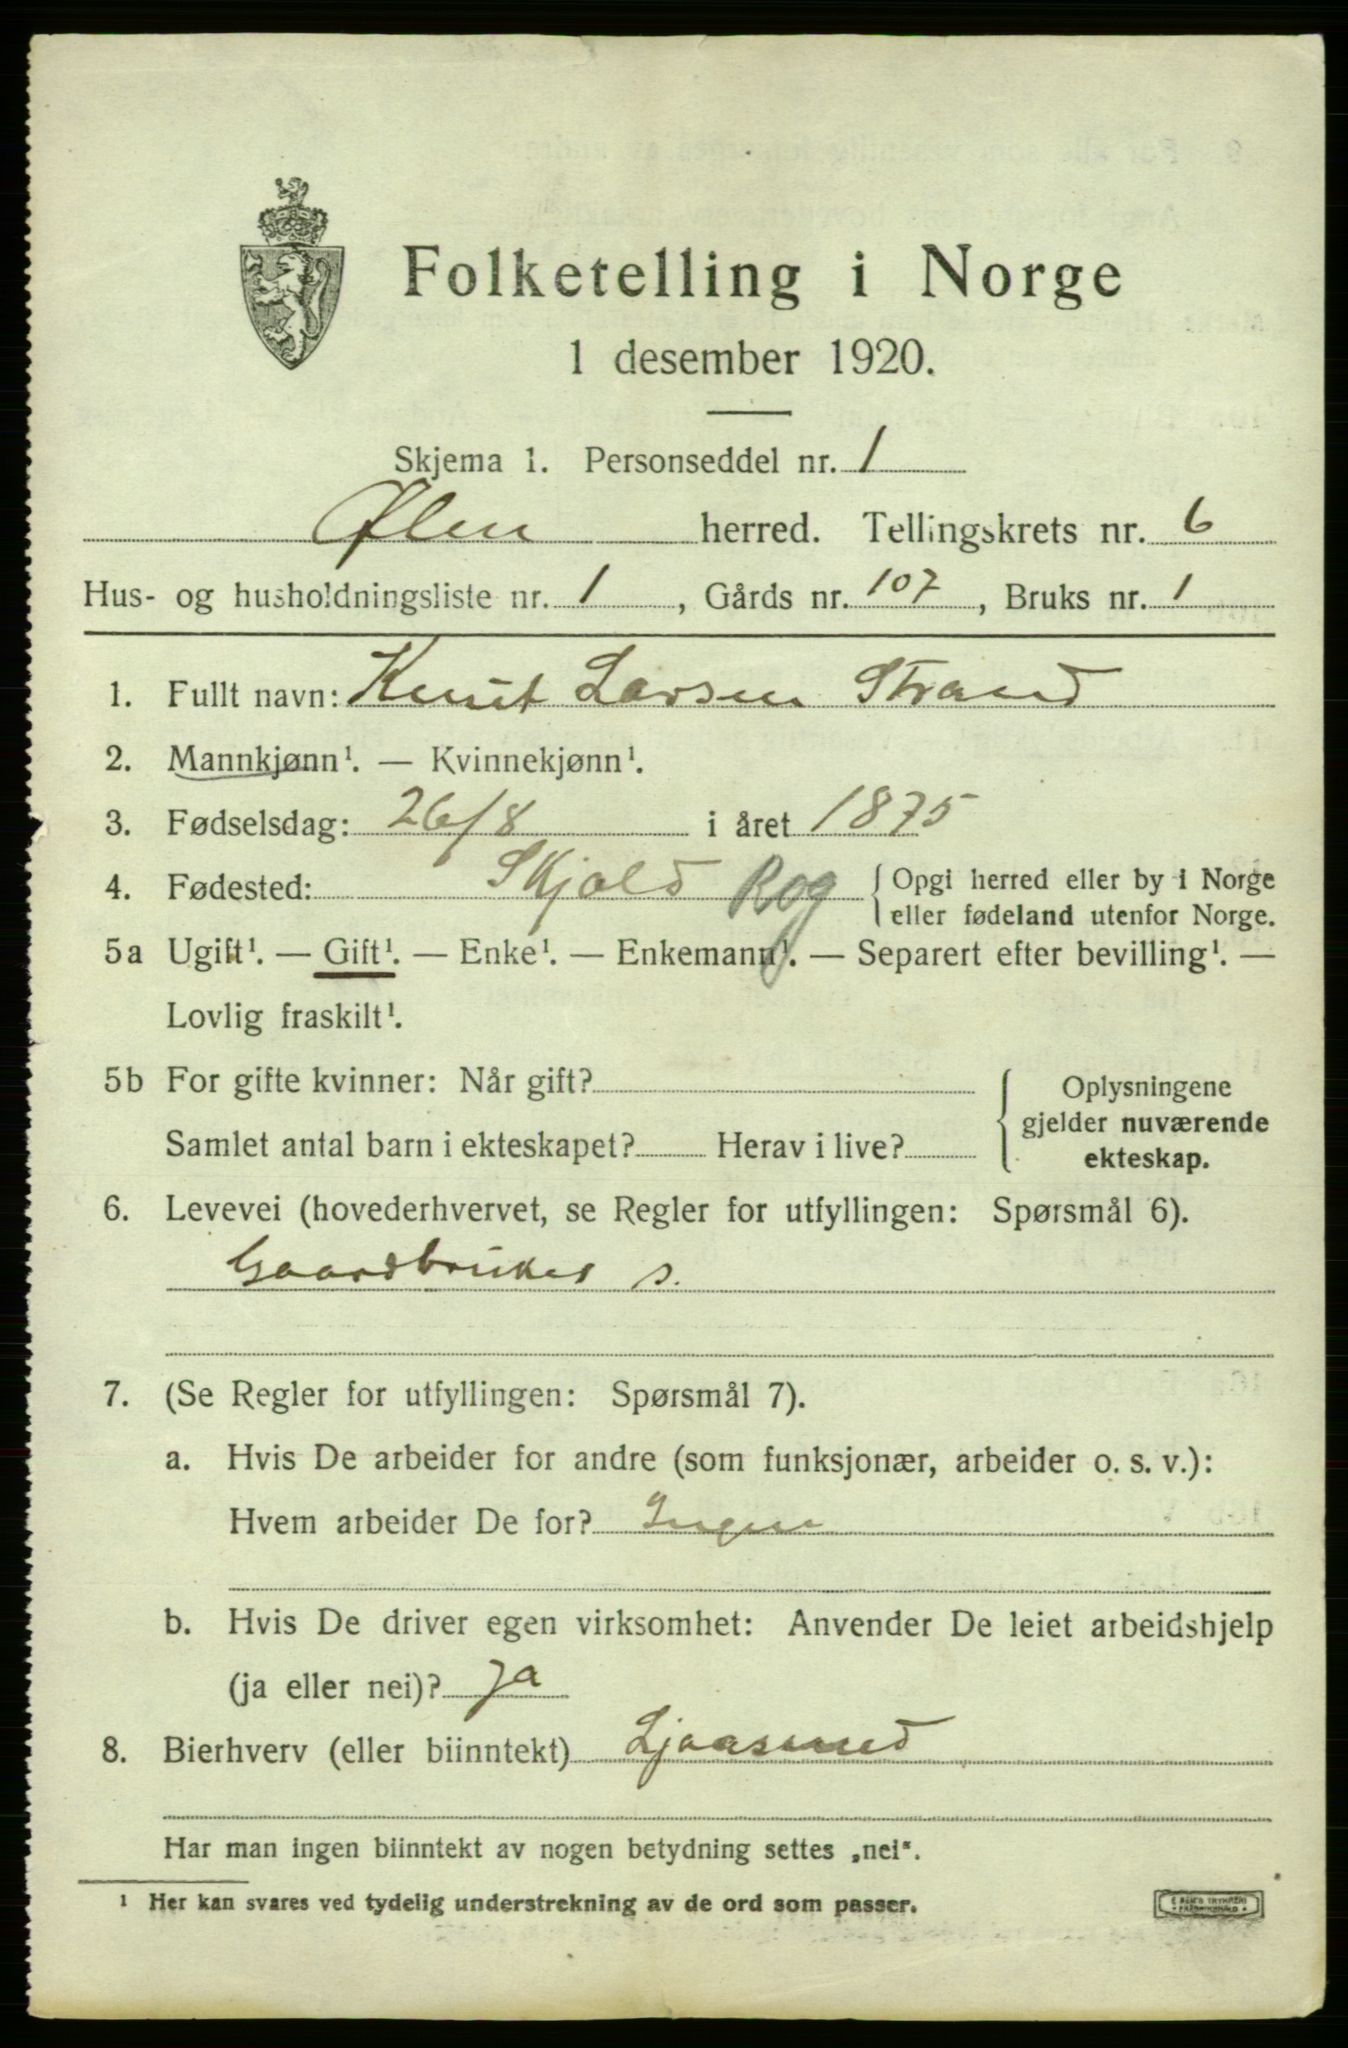 Folketelling i Norge
1 desember 1920.
Skjema 1. Personseddel nr. 1
Ølen herred. Tellingskrets nr. 6
Hus- og husholdningsliste nr. 1, Gårds nr. 107, Bruks nr. 1
1. Fullt navn: Knut Larsen Strand
2. Mannkjønn¹. — Kvinnekjønn¹.
3. Fødselsdag: 26/8 i året 1875
4. Fødested: Skjold Rog { Opgi herred eller by i Norge
eller fødeland utenfor Norge.
5a Ugift¹. — Gift¹. — Enke¹. — Enkemann¹. — Separert efter bevilling¹. —
Lovlig fraskilt¹.
5b For gifte kvinner: Når gift?
Samlet antal barn i ekteskapet? Herav i live?
{ Oplysningene
gjelder nuværende
ekteskap.
6. Levevei (hovederhvervet, se Regler for utfyllingen: Spørsmål 6).
Gaardbruker s.
7. (Se Regler for utfyllingen: Spørsmål 7).
a. Hvis De arbeider for andre (som funksjonær, arbeider o. s. v.):
Hvem arbeider De for? Ingen
b. Hvis De driver egen virksomhet: Anvender De leiet arbeidshjelp
(ja eller nei)? ja
8. Bierhverv (eller biinntekt) Ljaasmed
Har man ingen biinntekt av nogen betydning settes „nei“.
¹ Her kan svares ved tydelig understrekning av de ord som passer.